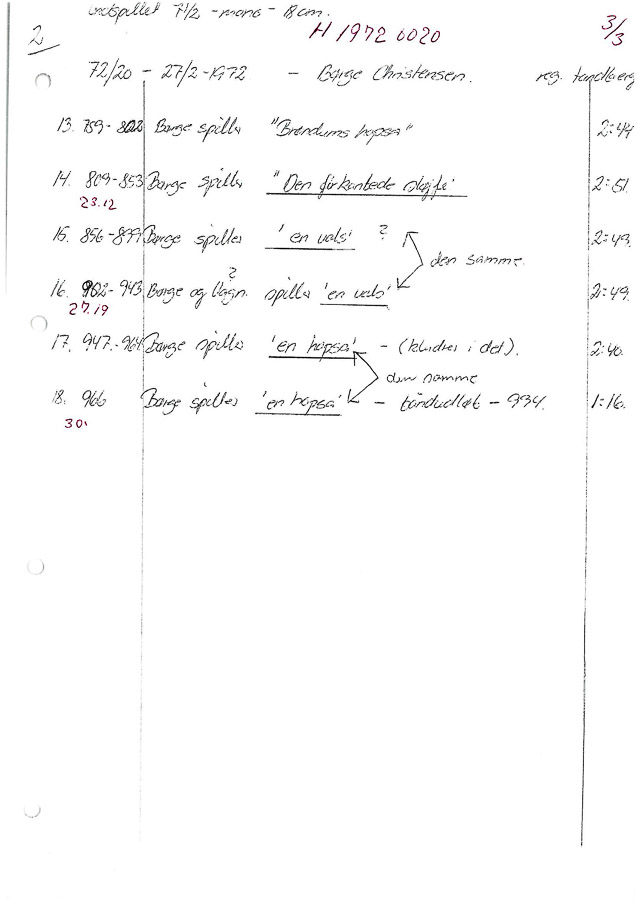 indspillet 7 1/2 - mono - 18 cm.
2
H 1972 0020
3/3
72/20 - 27/2-1972 - Børge Christensen. reg. tandberg
13. 759-802 Børge spiller "Brøndums hopsa" 2:44
14. 809-853 Børge spiller "Den firkantede sløjfe" 2:51.
23.12
15. 856-899 Børge spiller 'en vals' ? 2:49.
den samme.
?
16. 902-943 Børge og Vagn. spiller 'en vals' 2:49.
27.19
17. 947.-964 Børge spiller 'en hopsa' - (kludrer i det). 2:40.
den samme
18. 966 Børge spiller 'en hopsa' - båndudløb - 994. 1:16.
30.